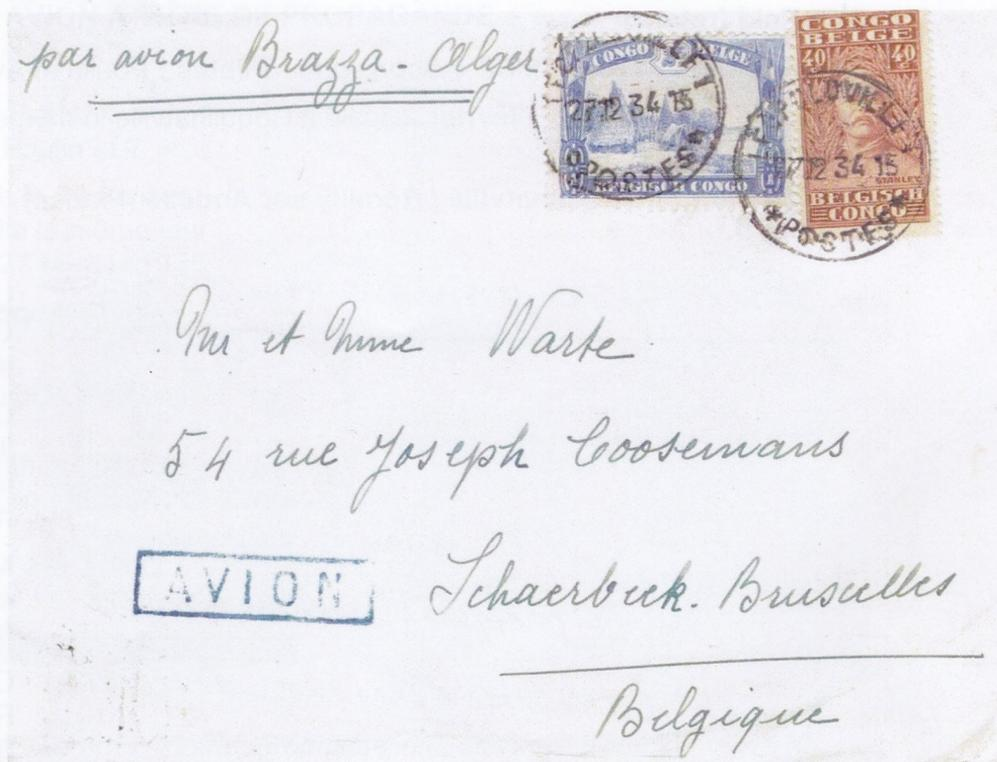 par avion Brazza - Alger
CONGO BELGE
27.12 34 15
POSTES
BELGISCH CONGO
CONGO
BELGE
40 40
12 34 15
STANLEY
BELGISCH
CONGO
*POSTES*
Mr et Mme Warte
54 rue Joseph Coosemans
AVION
Schaerbeek. Bruxelles
Belgique